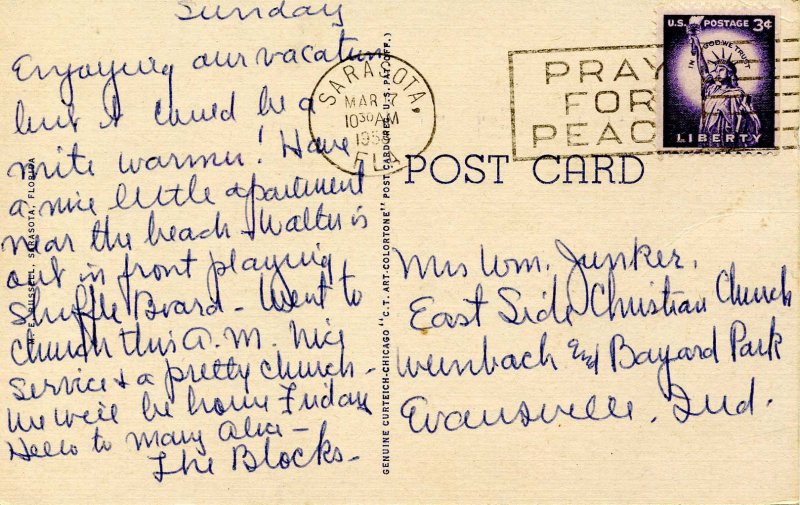 Sunday
Enjoying our vacation
but it could be a
mite warmer! Have
a nice little apartment
near the beach - Walter is
out in front playing
Shuffle Board - Went to
church this A.M. Nice
Service & a pretty church -
We will be home Friday
Hello to Mary Alice -
The Blocks -
M. E. RUSSELL, SARASOTA, FLORIDA
GENUINE CURTEICH-CHICAGO "C.T. ART-COLORTONE" POST CARD (REG. U.S. PAT. OFF.)
SARASOTA,
MAR 7
10 30 AM
FLA
PRAY
FOR
PEAC
U.S. POSTAGE 3¢
IN GOD WE TRUST
LIBERTY
POST CARD
Mrs Wm. Junker.
East Side Christian Church
Weinbach and Bayard Park
Evansville, Ind.